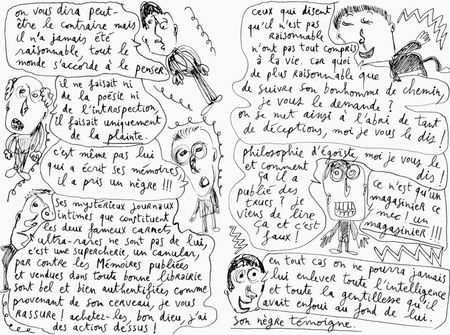 on vous dira peut-
être le contraire mais
il n'a jamais été
raisonnable, tout le
monde s'accorde à le penser
il ne faisait ni
de la poésie ni
de l'introspection,
il faisait uniquement
de la plainte.
c'est même pas lui
qui a écrit ses mémoires
il a pris un nègre !!!
ses mystérieux journaux
intimes que constituent
les deux fameux carnets
ultra-rares ne sont pas de lui,
c'est une supercherie, un canular,
par contre les Mémoires publiées
et vendues dans toute bonne librairie
sont bel et bien authentifiées comme
provenant de son cerveau, je vous
rassure ! achetez-les, bon dieu, j'ai
des actions dessus !
ceux qui disent
qu'il n'est pas
raisonnable
n'ont pas tout compris
à la vie. car quoi
de plus raisonnable que
de suivre son bonhomme de chemin,
je vous le demande ?
on se met ainsi à l'abri de tant
de déceptions, moi je vous le dis !
philosophie d'égoïste, moi je vous le
dis
et comment
ça il a
publié des
trucs ? je
viens de lire
ça et c'est
faux !
ce n'est qu'un
magasinier ce
mec ! un
magasinier !!!
en tout cas on ne pourra jamais
lui enlever toute l'intelligence
et toute la gentillesse qu'il
avait enfoui au fond de lui.
son nègre témoigne.